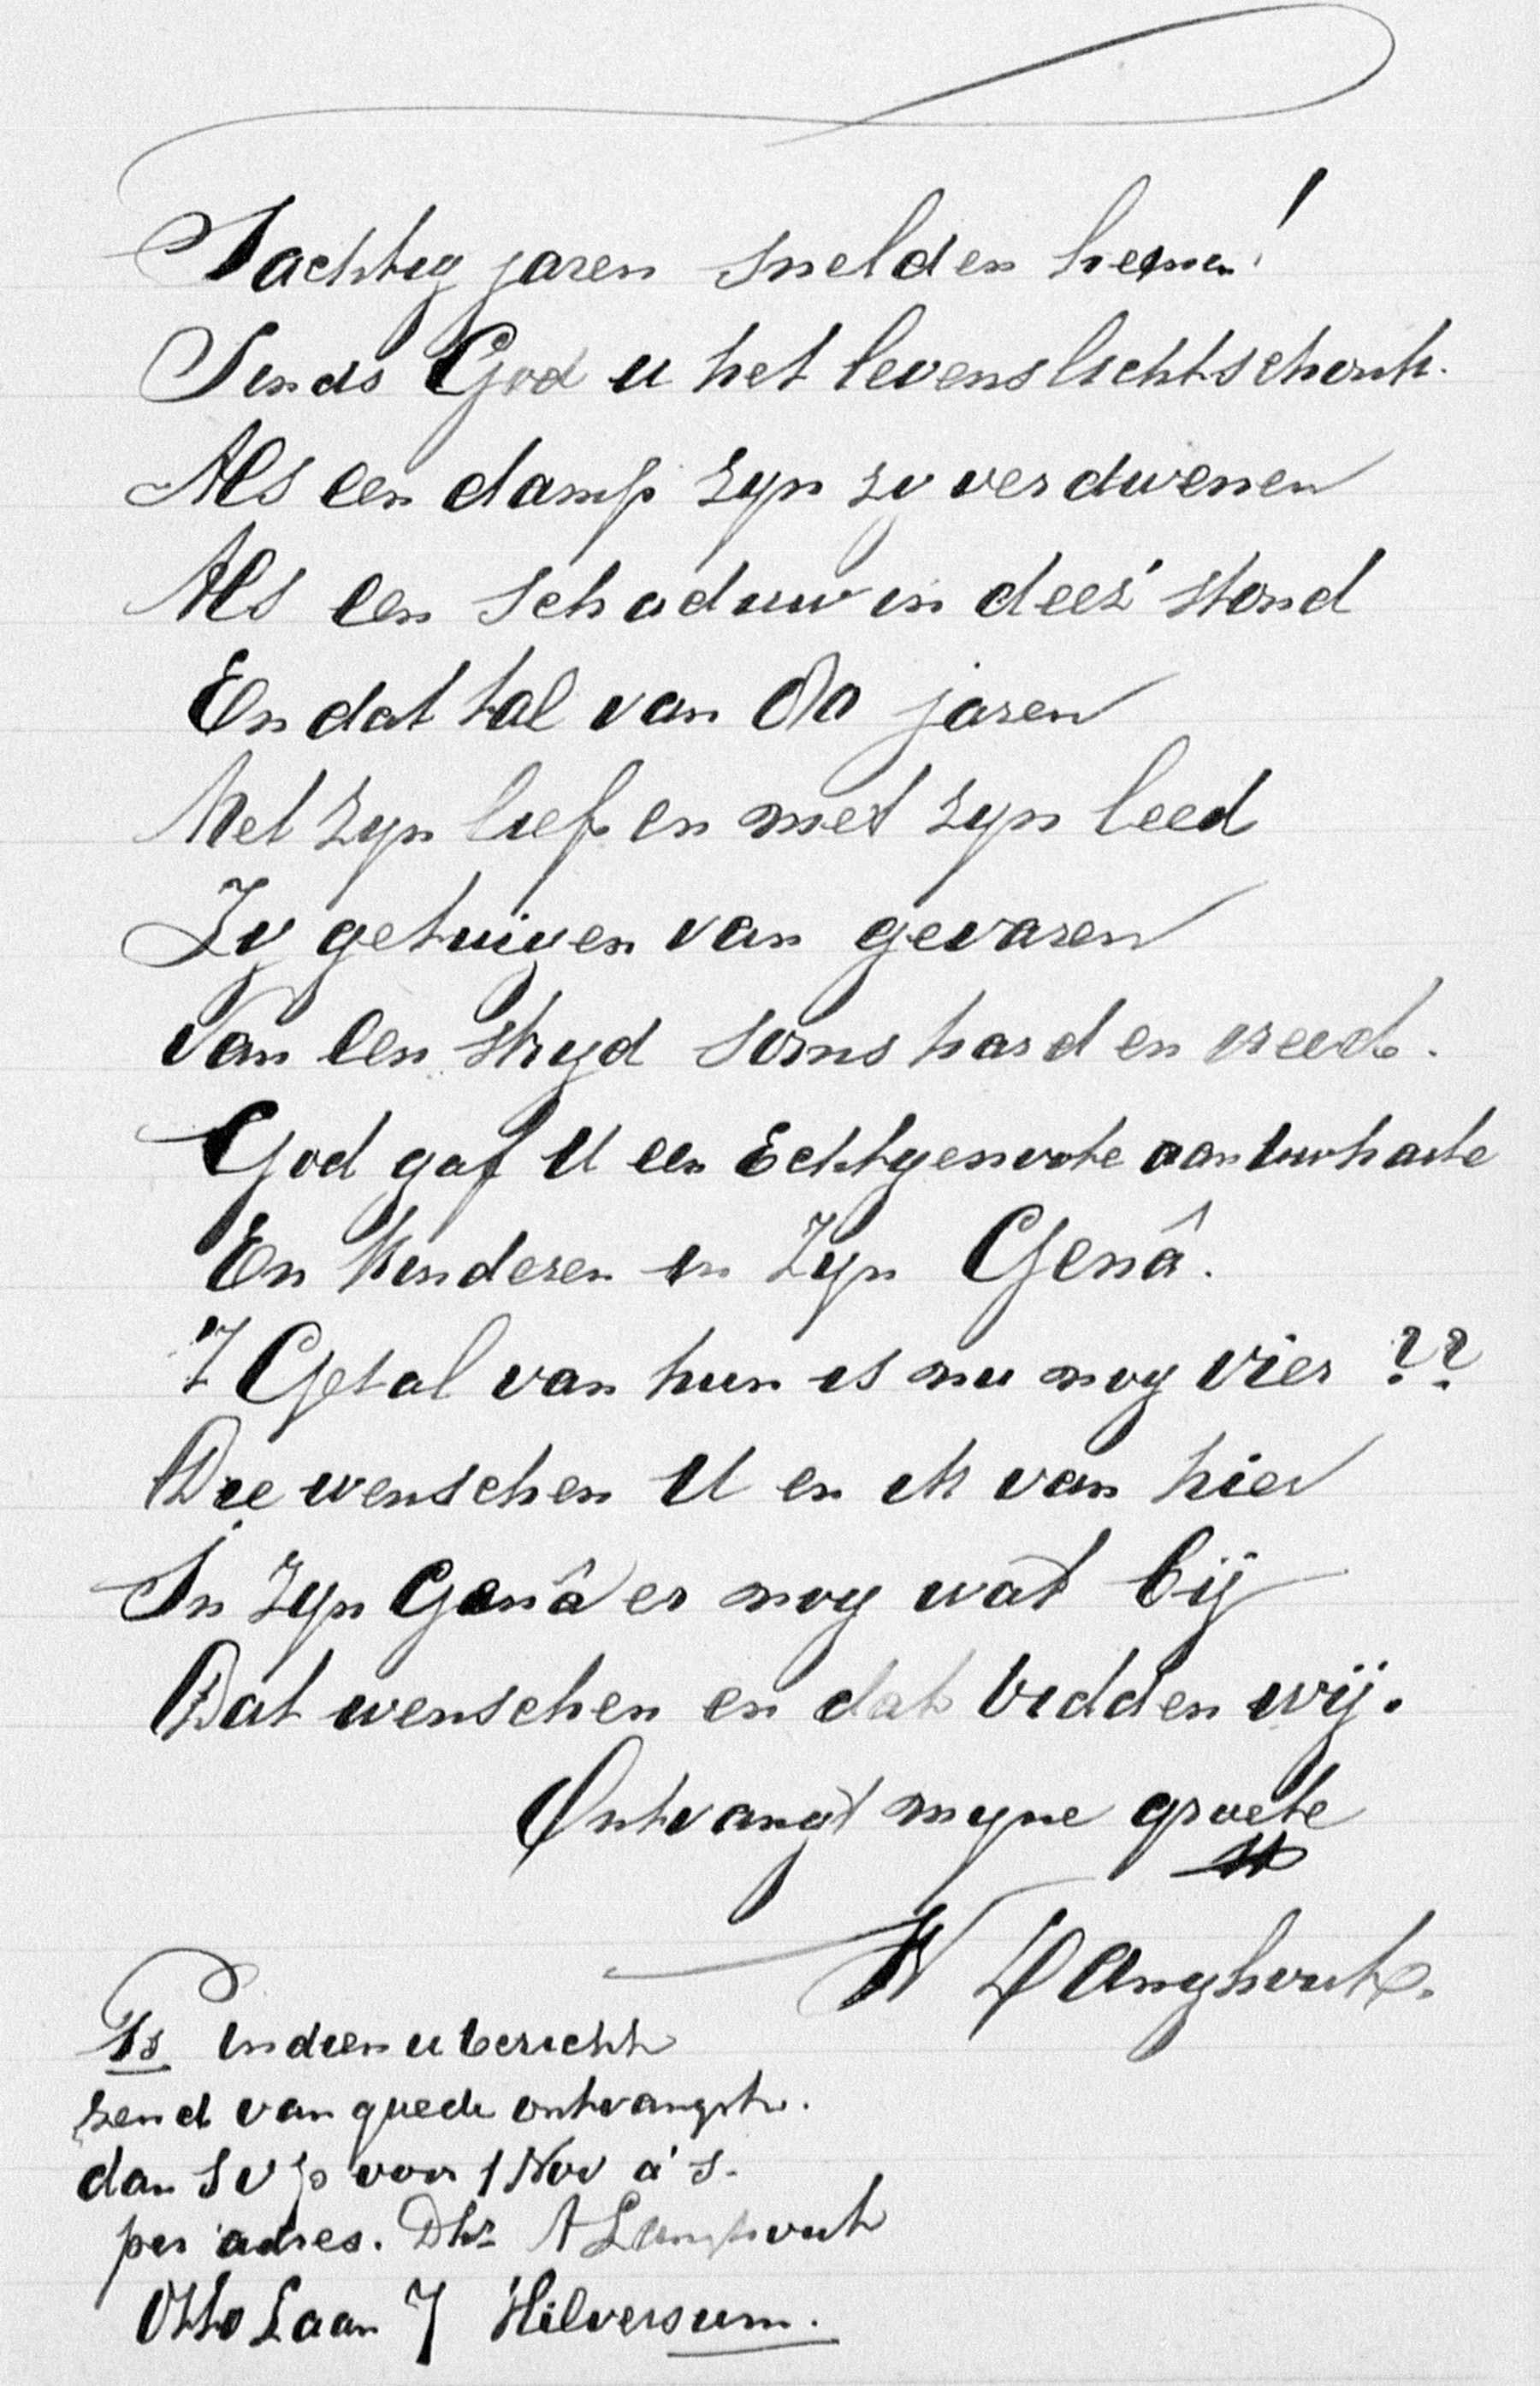 Tachtig jaren snelden henen!
Sends God u het levenslicht schonk.
Als een damp zyn zy verdwenen
Als een schaduw in deez' stond
En dat tal van 80 jaren
Met zyn lief en met zyn leed
Zy getuigen van gevaren
Van een stryd soms hard en wreed.
God gaf U een Echtgenoote aan uw harte
En Kinderen in Zyn Genâ.
'T Getal van hun is nu nog vier ??
Die wenschen U en ik van hier
In Zyn Genâ er nog wat bij
Dat wenschen en dat bidden wij.
Ontvangt myne groete
W Langhout.
Ps Indien u bericht
zend van goede ontvangst.
dan S V p voor 1 Nov a's.
per adres. Dhr A Langhout
Otto Laan 7 Hilversum.